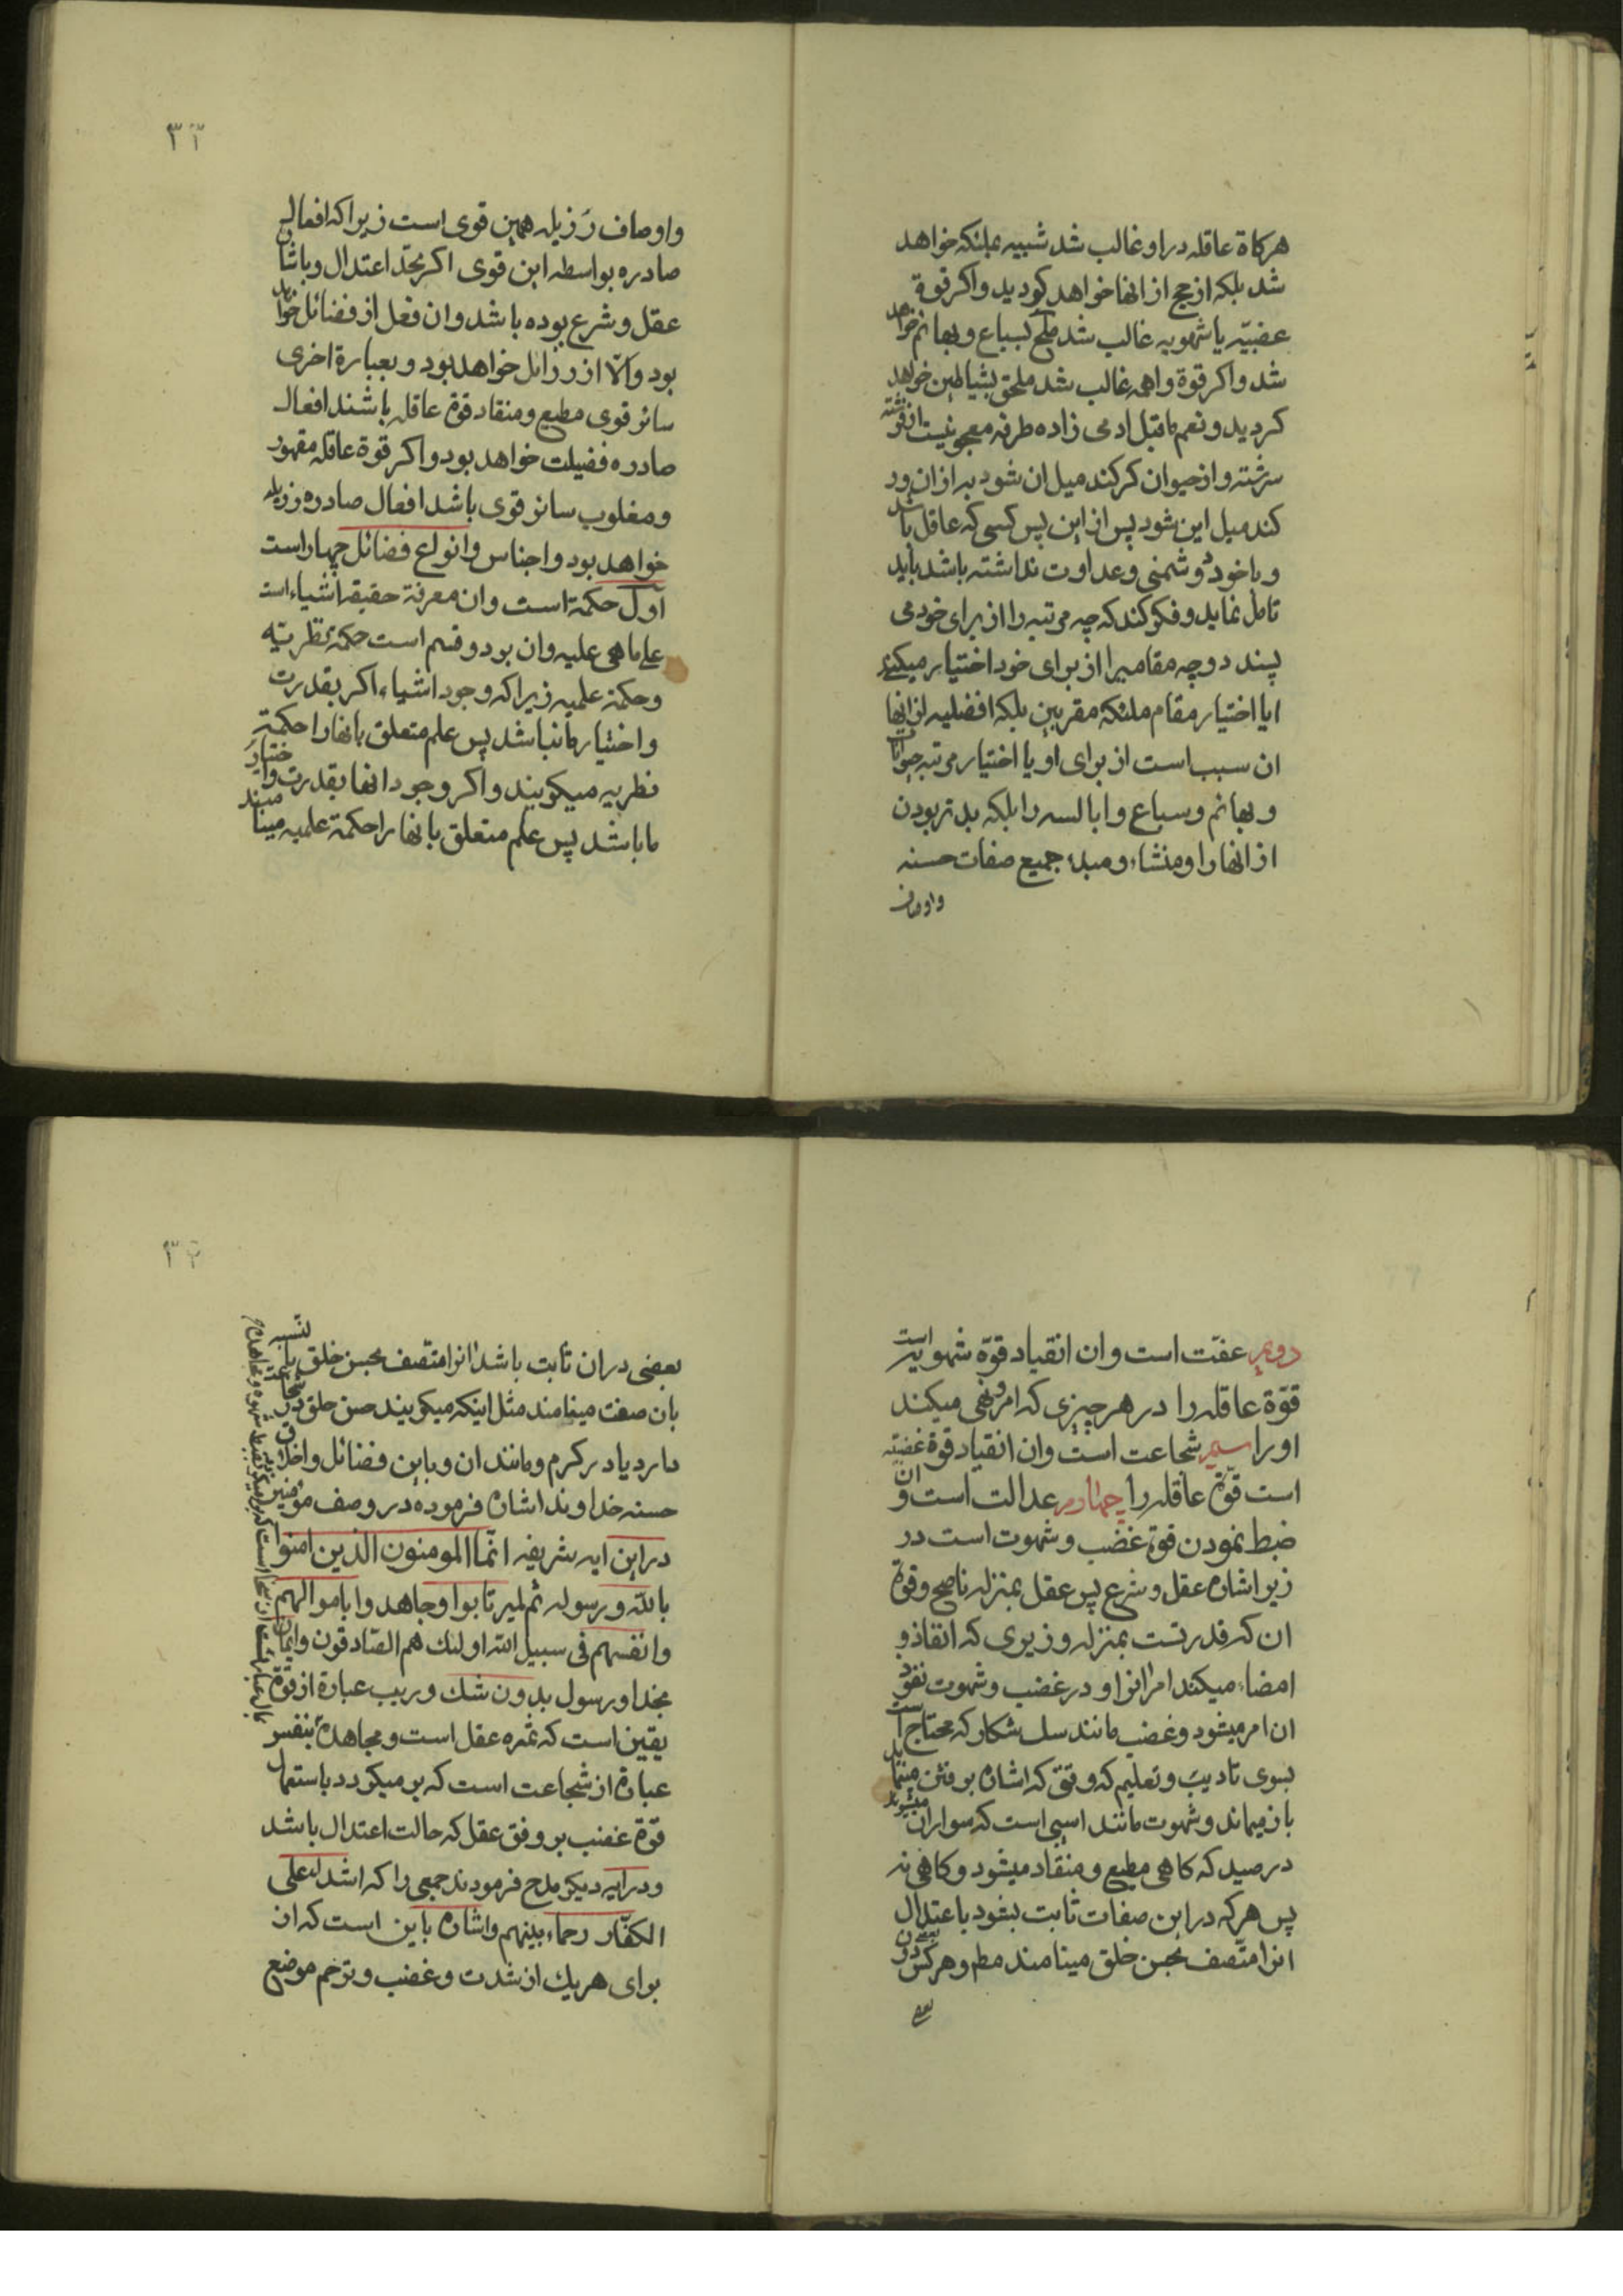 هرکاة عاقله در او غالب شد شبیه بملئکه خواهد
شد بلکه ارجح از انها خواهد کردید و اکر قوة
غضبیّه یا شهویه غالب شد ملحق بسباع و بهائم خواهد
شد و اکر قوة واهمه غالب شد ملحق بشیاطین خواهد
کردید و نعم ما قیل ادمی زاده طرفه معجونیست از فرشته
سرشته و از حیوان کر کند میل ان شود به از ان ور
کند میل این شود پس از این پس کسی که عاقل باشد
و با خود دشمنی و عداوت نداشته باشد باید
تامل نماید و فکر کند که چه مرتبه را از برای خود می
پسندد و چه مقامیرا از برای خود اختیار میکند
ایا اختیار مقام ملئکه مقربین بلکه افضلیه از انها
ان سبب است از برای او یا اختیار مرتبه حیوانات
و بهائم و سباع و ابالسه را بلکه بدتر بودن
از انها را و منشاء و مبدء جمیع صفات حسنه
و اوصاف
۳۲
و اوصاف رَزیله همین قوی است زیرا که افعال
صادره بواسطه این قوی اکر بحدّ اعتدال و باشان
عقل و شرع بوده باشد و ان فعل از فضائل خواهد
بود و الّا از رزائل خواهد بود و بعبارة اخری
سائر قوی مطیع و منقاد قوة عاقله باشند افعال
صادره فضیلت خواهد بود و اکر قوة عاقله مقهور
و مغلوب سائر قوی باشد افعال صادره رزیله
خواهد بود و اجناس و انواع فضائل چهار است
اول حکمة است و ان معرفة حقیقه اشیاء است
علی ما هی علیه و ان بر دو قسم است حکمة نظریّه
و حکمة علمیه زیرا که وجود اشیاء اکر بقدرت
و اختیار ما نباشد پس علم متعلق بانها را حکمة
نظریه میکویند و اکر وجود انها بقدرت و اختیار
ما باشد پس علم متعلق بانها را حکمة علمیه مینامند
دویم عفّت است و ان انقیاد قوّة شهویه است
قوّة عاقله را در هر چیزی که امر و نهی میکند
او را سیم شجاعت است و ان انقیاد قوة غضبیّه
است قوّة عاقله را چهارم عدالت است و ان
ضبط نمودن قوة غضب و شهوت است در
زیر اشاره عقل و شرع پس عقل بمنزله ناصح و قوة
ان که قدرتست بمنزله وزیری که انقاذ و
امضاء میکند امر انرا و در غضب و شهوت نفوذ
ان امر میشود و غضب مانند سک شکار که محتاج است
بسوی تادیب و تعلیم که وقتی که اشاره برفتن مینماید
باز میماند و شهوت مانند اسبی است که سواران میشوند
در صید که کاهی مطیع و منقاد میشود و کاهی نه
پس هر که در این صفات ثابت بشود باعتدال
انرا متّصف بحسن خلق مینامند مط و هر کس
بعضی
بعضی در ان ثابت باشد انرا متّصف بحسن خلق بالنّسبه
بان صفت مینامند مثل اینکه میکویند حسن خلق در شجاعت
دارد یا در کرم و مانند ان و باین فضائل و اخلاق
حسنه خداوند اشاره فرموده در وصف مؤمنین
در این ایه شریفه انّما المومنون الذین امنوا
بالله و رسوله ثم لم یرتابوا و جاهدوا باموالهم
و انفسهم فی سبیل الله اولئك هم الصّادقون و ایمان
بخدا و رسول بدون شك و ریب عبارة از قوّة
یقین است که ثمره عقل است و مجاهدهٔ بنفس
عبارة از شجاعت است که برمیکردد باستعمال
قوّة غضب بر وفق عقل که حالت اعتدال باشد
و در ایه دیکر مدح فرمودند جمعی را که اشداء علی
الکفّار رحماء بینهم و اشاره باین است که از
برای هر یك از شدت و غضب و ترحّم موضع